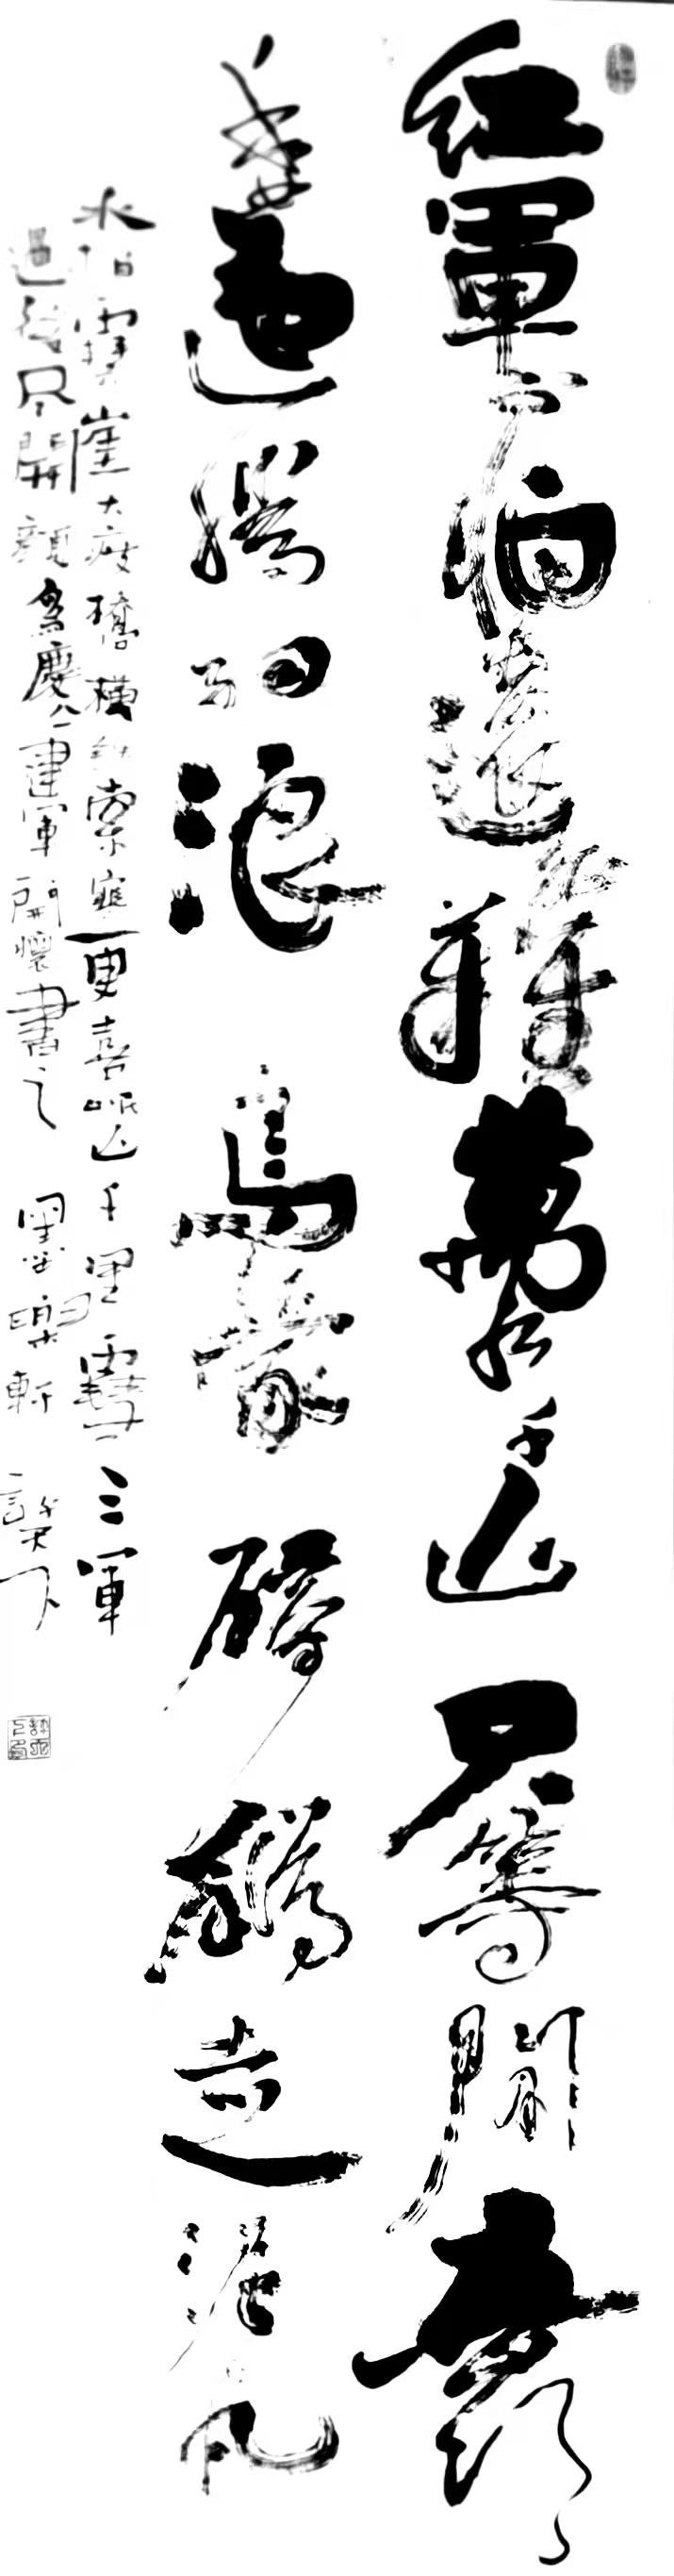 紅軍不怕遠征難萬水千山只等閒五嶺
逶迤騰細浪烏蒙磅礴走泥丸
水拍雲崖大渡橋橫鉄索寒更喜岷山千里雪三軍
過後尽開顏為慶八一建軍開懷書之墨樂軒